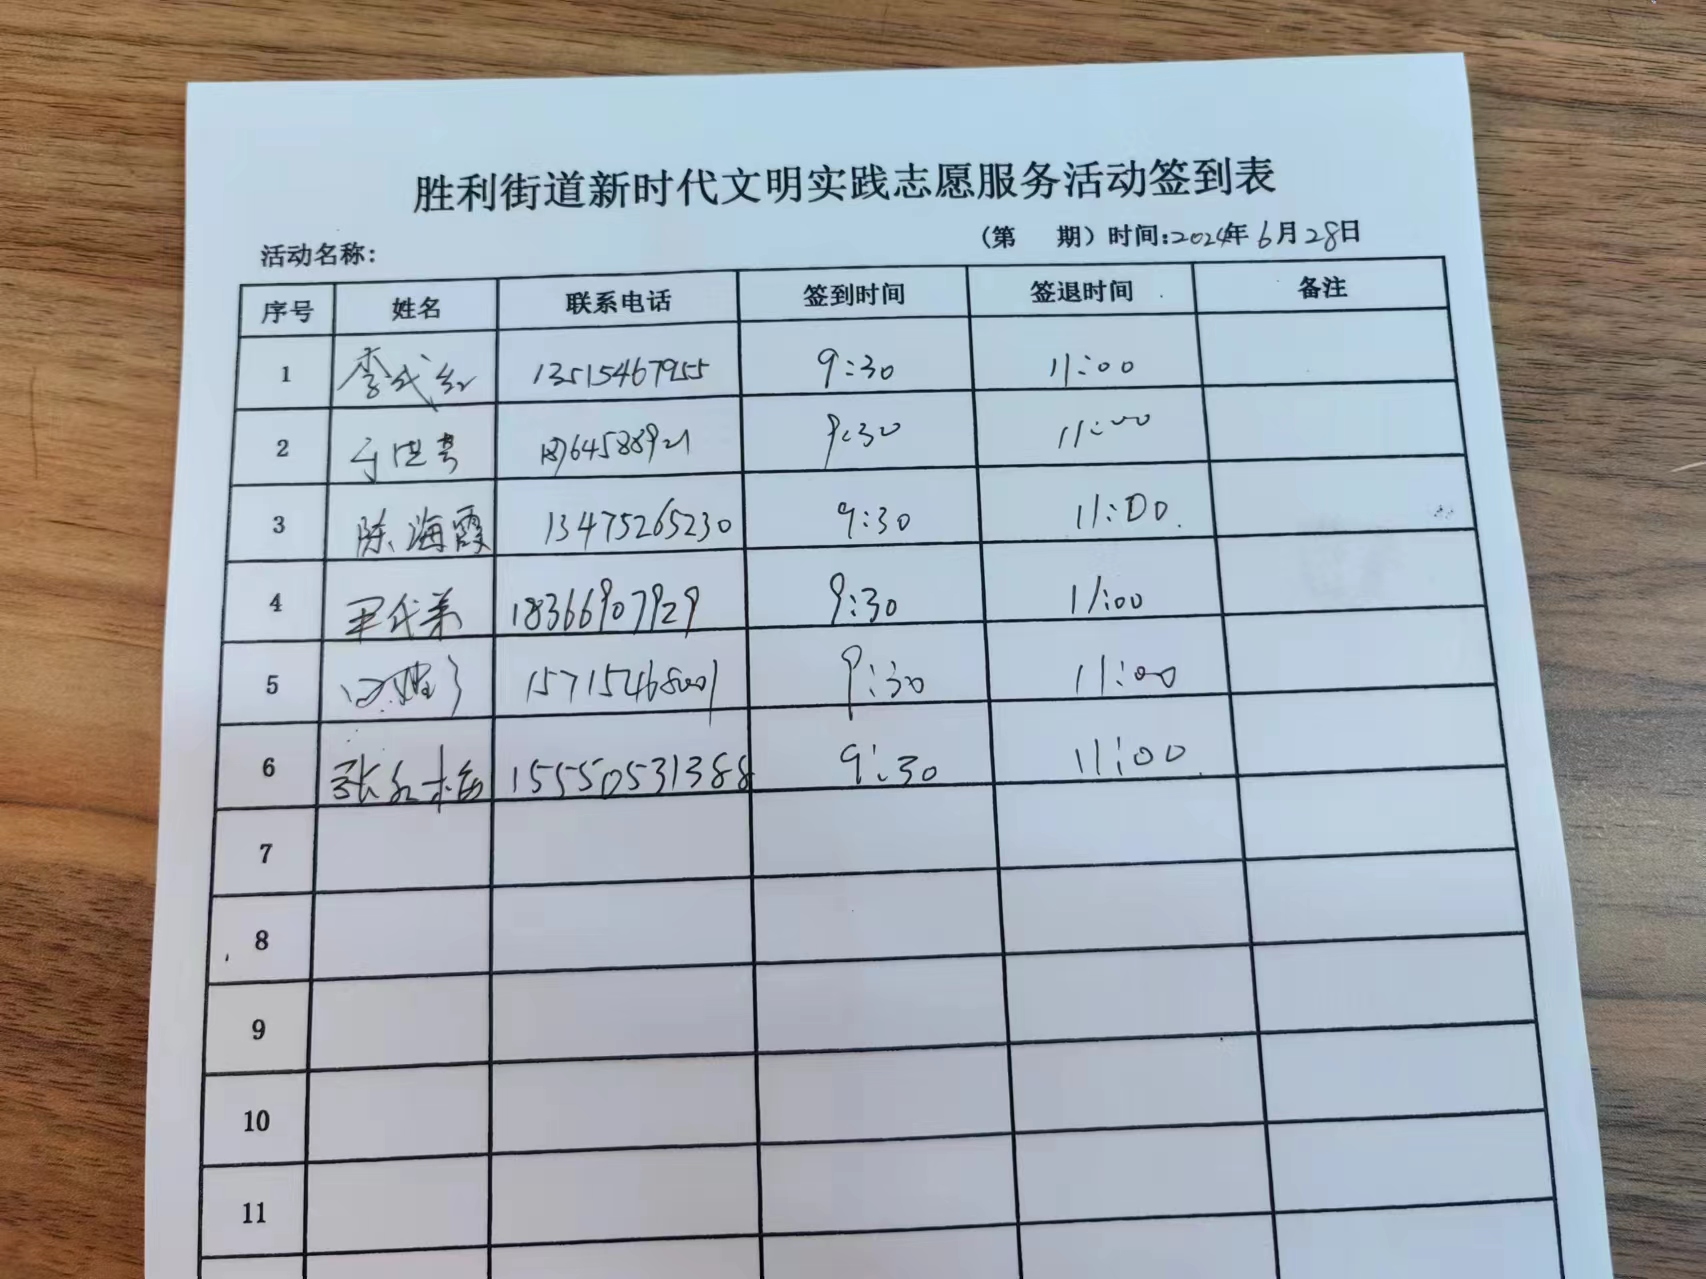 胜利街道新时代文明实践志愿服务活动签到表
活动名称: (第 期)时间:2024年6月28日
序号 姓名 联系电话 签到时间 签退时间 备注
1 李代红 13515467955 9:30 11:00
2 9:30 11:00
3 陈海霞 13475265230 9:30 11:00
4 18366907929 9:30 11:00
5 15715468001 9:30 11:00
6 张红梅 15550531388 9:30 11:00
7
8
9
10
11